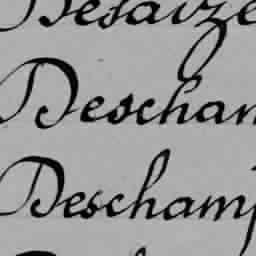 Desaize
Descham
Deschamp